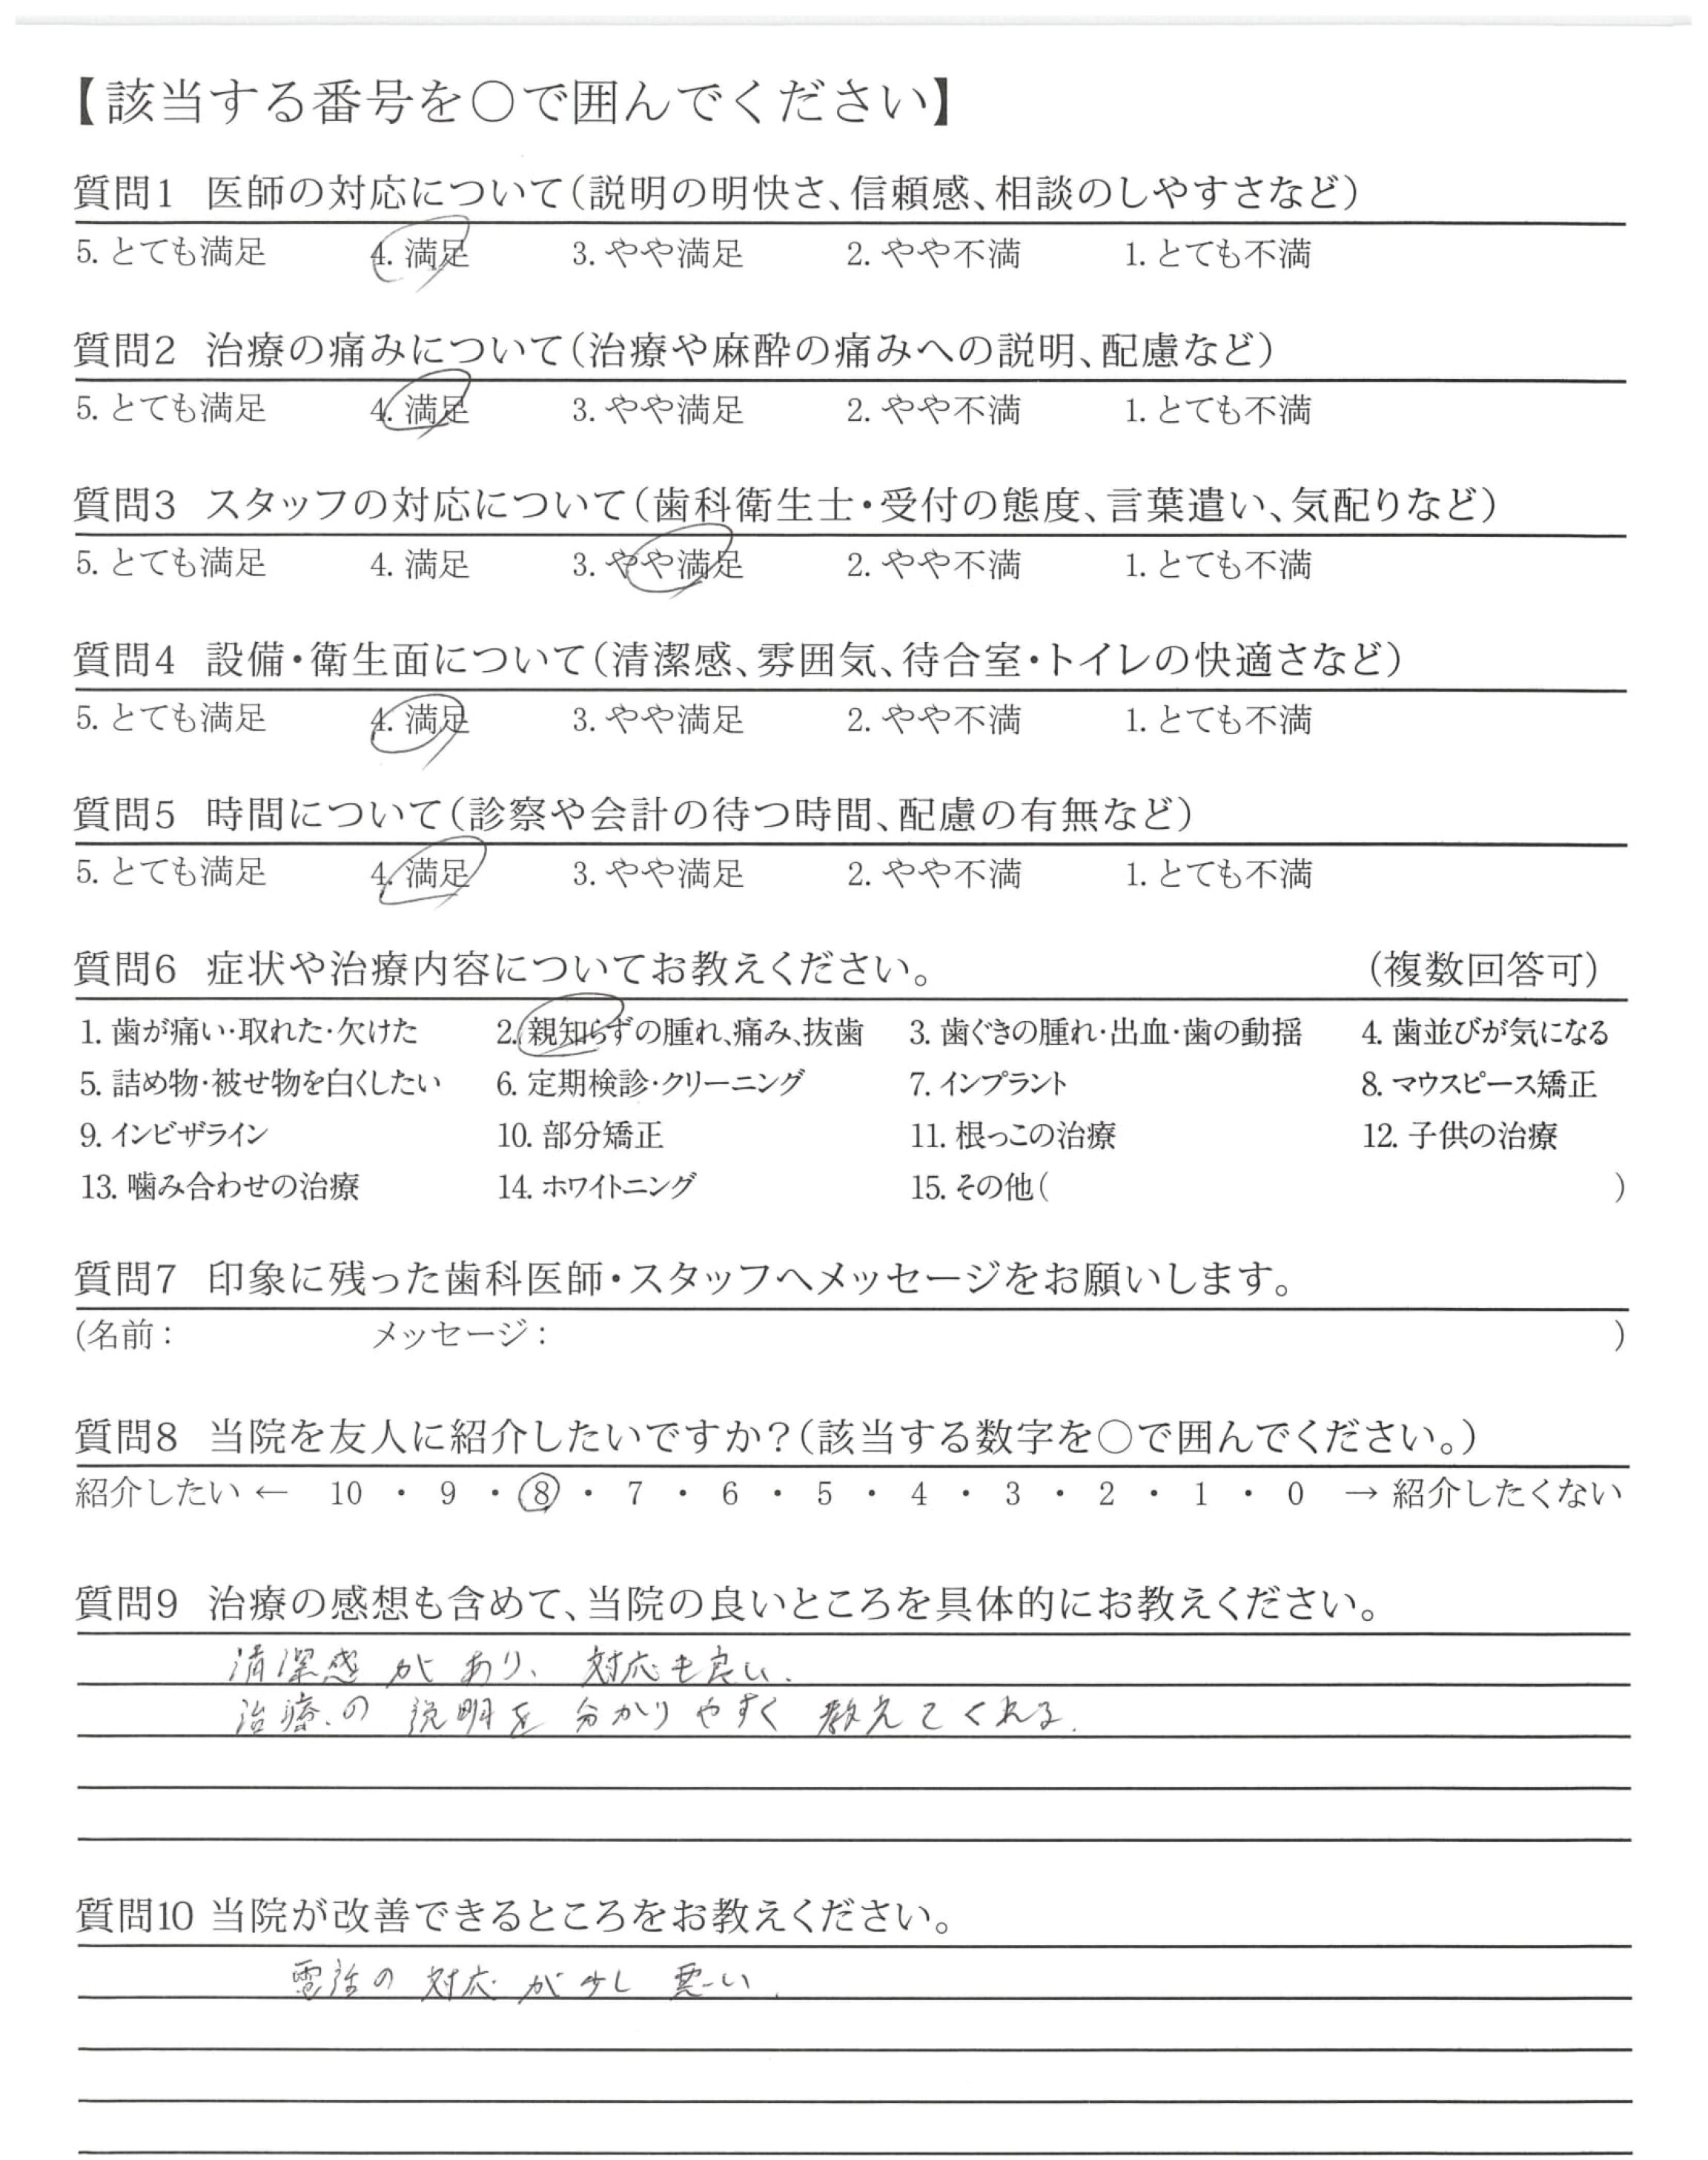 【該当する番号を〇で囲んでください】
質問1 医師の対応について（説明の明快さ、信頼感、相談のしやすさなど）
5. とても満足 4. 満足 3. やや満足 2. やや不満 1. とても不満
質問2 治療の痛みについて（治療や麻酔の痛みへの説明、配慮など）
5. とても満足 4. 満足 3. やや満足 2. やや不満 1. とても不満
質問3 スタッフの対応について（歯科衛生士・受付の態度、言葉遣い、気配りなど）
5. とても満足 4. 満足 3. やや満足 2. やや不満 1. とても不満
質問4 設備・衛生面について（清潔感、雰囲気、待合室・トイレの快適さなど）
5. とても満足 4. 満足 3. やや満足 2. やや不満 1. とても不満
質問5 時間について（診察や会計の待つ時間、配慮の有無など）
5. とても満足 4. 満足 3. やや満足 2. やや不満 1. とても不満
質問6 症状や治療内容についてお教えください。 （複数回答可）
1. 歯が痛い・取れた・欠けた 2. 親知らずの腫れ、痛み、抜歯 3. 歯ぐきの腫れ・出血・歯の動揺 4. 歯並びが気になる
5. 詰め物・被せ物を白くしたい 6. 定期検診・クリーニング 7. インプラント 8. マウスピース矯正
9. インビザライン 10. 部分矯正 11. 根っこの治療 12. 子供の治療
13. 噛み合わせの治療 14. ホワイトニング 15. その他（ ）
質問7 印象に残った歯科医師・スタッフへメッセージをお願いします。
（名前： メッセージ： ）
質問8 当院を友人に紹介したいですか？（該当する数字を〇で囲んでください。）
紹介したい ← 10 ・ 9 ・ 8 ・ 7 ・ 6 ・ 5 ・ 4 ・ 3 ・ 2 ・ 1 ・ 0 → 紹介したくない
質問9 治療の感想も含めて、当院の良いところを具体的にお教えください。
清潔感があり、対応も良い.
治療の説明を分かりやすく教えてくれる.
質問10 当院が改善できるところをお教えください。
電話の対応が少し悪い.